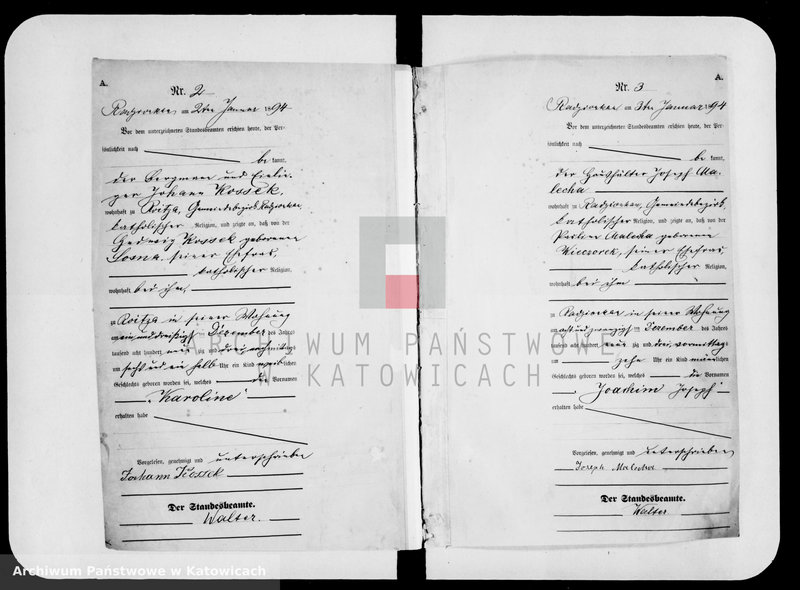 A.
Nr. 2
Radzionkau am 2ten Januar 1894
Vor dem unterzeichneten Standesbeamten erschien heute, der Per-
sönlichkeit nach
be kannt,
der Bergmann und
Johann Kossek,
wohnhaft zu Roitza, Gemeindebezirk Radzionkau,
katholischer Religion, und zeigte an, daß von der
Hedwig Kossek geborenen
Sosna, seiner Ehefrau,
katholischer Religion,
wohnhaft bei ihm,
zu Roitza in seiner Wohnung
am ein und dreißigst Dezember des Jahres
tausend acht hundert neun zig und drei nachmittags
um sechs und ein halb Uhr ein Kind weib lichen
Geschlechts geboren worden sei, welches die Vornamen
"Karoline"
erhalten habe
Vorgelesen, genehmigt und unterschrieben
Johann Kossek
Der Standesbeamte.
Walter.
A.
Nr. 3
Radzionkau am 3ten Januar 1894
Vor dem unterzeichneten Standesbeamten erschien heute, der Per-
sönlichkeit nach
be kannt,
der Häushälter Joseph Ma-
lecha
wohnhaft zu Radzionkau, Gemeindebezirk,
katholischer Religion, und zeigte an, daß von der
Pauline Malecha geborenen
Wieczorek, seiner Ehefrau,
katholischer Religion,
wohnhaft bei ihm
zu Radzionkau in seiner Wohnung
am acht und zwanzigst Dezember des Jahres
tausend acht hundert neun zig und drei vormittags
um zehn Uhr ein Kind männlichen
Geschlechts geboren worden sei, welches die Vornamen
"Joachim Joseph"
erhalten habe
Vorgelesen, genehmigt und unterschrieben
Joseph Malecha
Der Standesbeamte.
Walter
ARCHIWUM PAŃSTWOWE
W KATOWICACH
Archiwum Państwowe w Katowicach